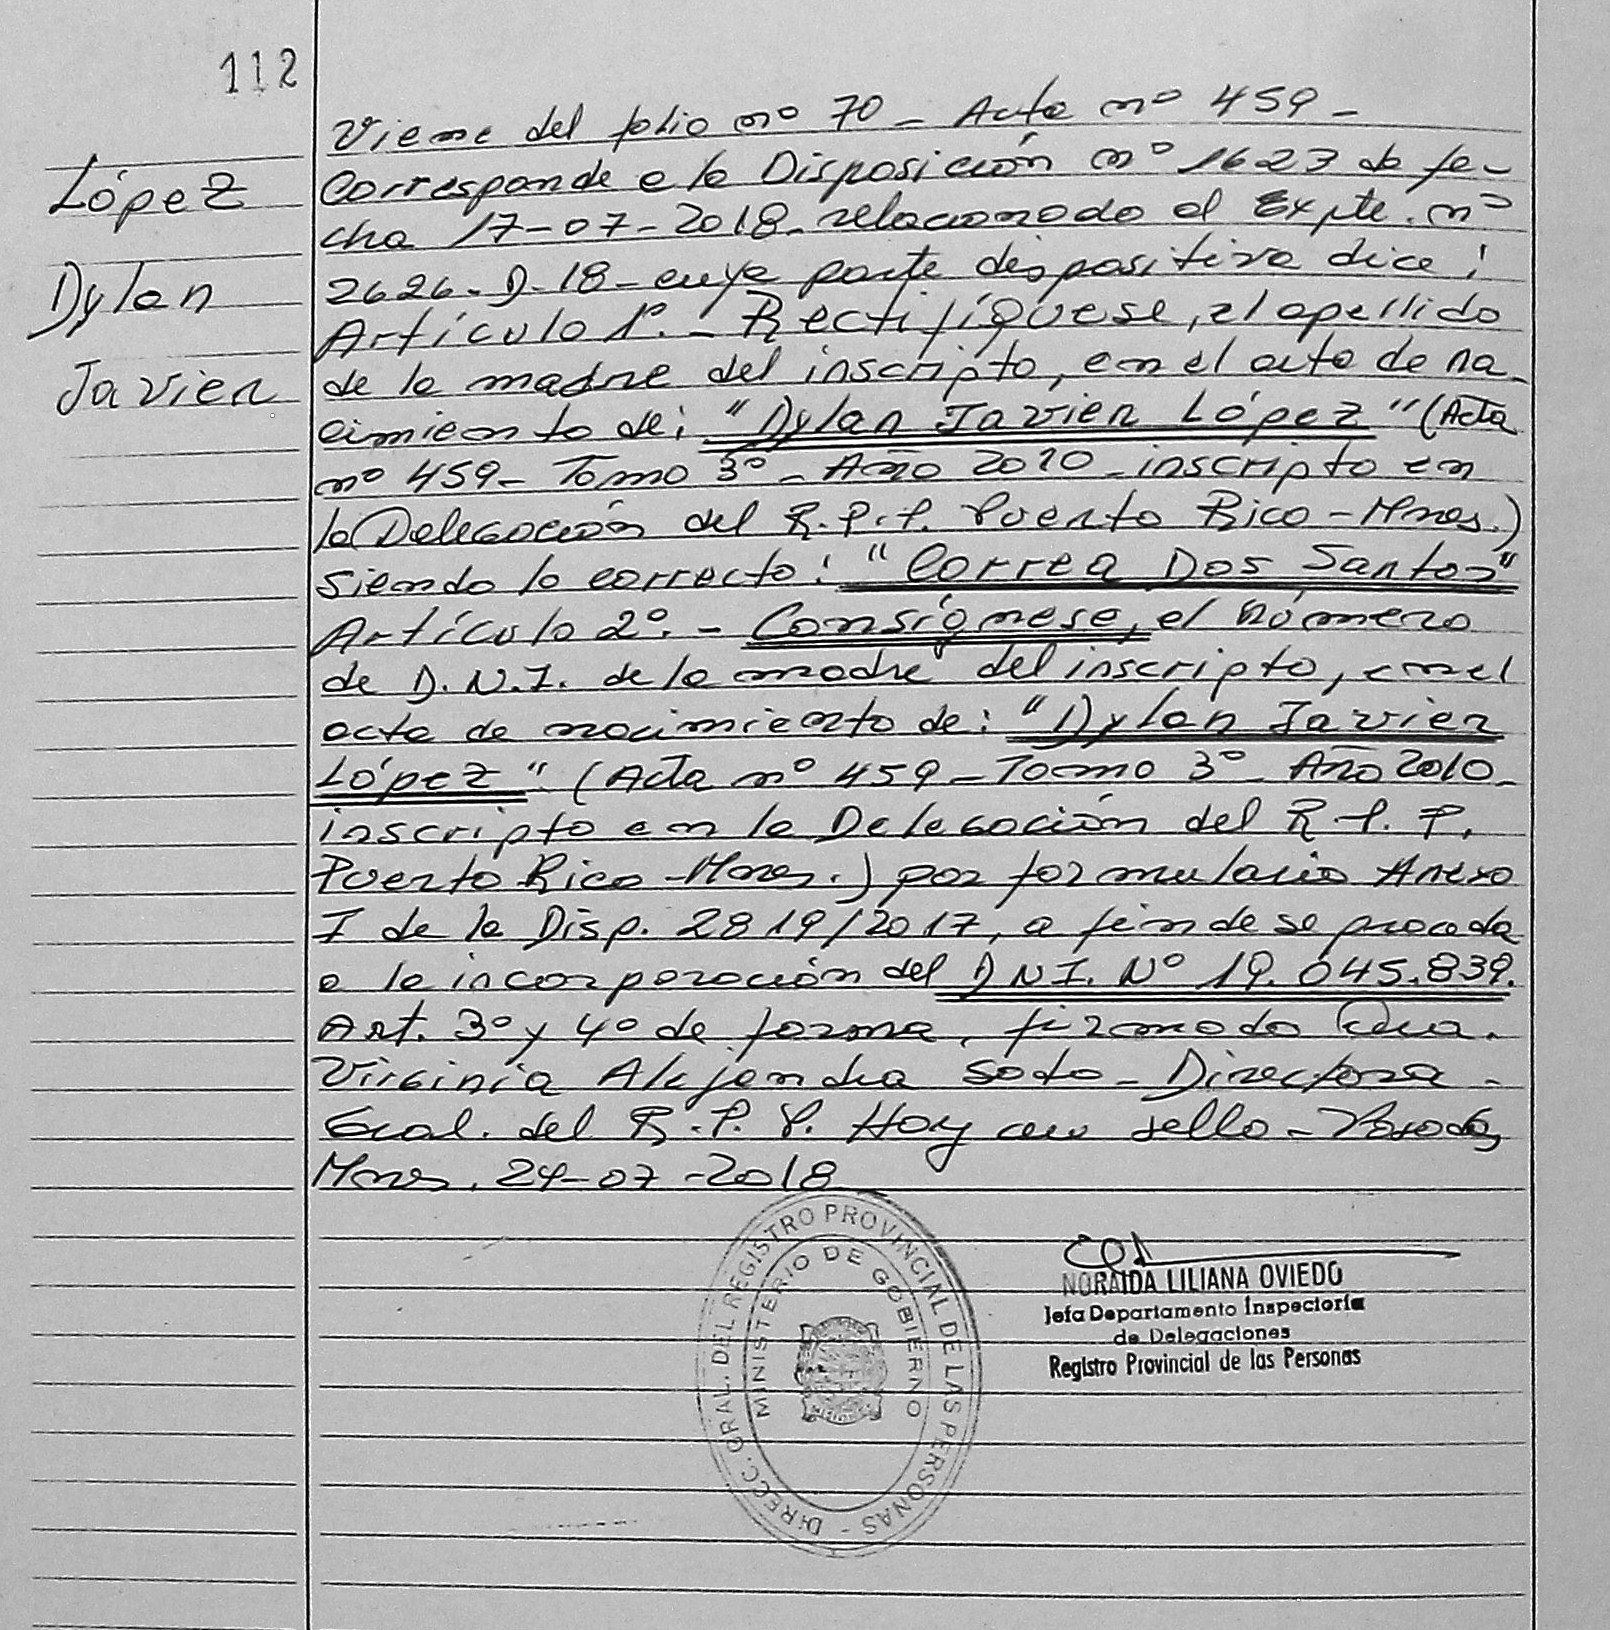 112
López
Dylan
Javier
Viene del folio nº 70 - Acta nº 459 -
Corresponde a la Disposición nº 1623 de fe-
cha 17-07-2018 - relacionado al Expte. nº
2626 - D - 18 - cuya parte dispositiva dice:
Artículo 1º. - Rectifíquese, el apellido
de la madre del inscripto, en el acta de na-
cimiento de: "Dylan Javier López" (Acta
nº 459 - Tomo 3º - Año 2010 - inscripto en
la Delegación del R.P.P. Puerto Rico - Mnes.)
siendo lo correcto: "Correa Dos Santos"
Artículo 2º. - Consígnese, el número
de D.N.I. de la madre del inscripto, en el
acta de nacimiento de: "Dylan Javier
López" (Acta nº 459 - Tomo 3º - Año 2010 -
inscripto en la Delegación del R.P.P.
Puerto Rico - Mnes.) por formulario Anexo
I de la Disp. 2819/2017, a fin de se proceda
a la incorporación del D.N.I. Nº 19.045.839.
Art. 3º y 4º de forma, firmado Dra.
Virginia Alejandra Soto - Directora -
Gral. del R.P.P. Hay un sello - Posadas,
Mnes, 24-07-2018
NORAIDA LILIANA OVIEDO
Jefa Departamento Inspectoría
de Delegaciones
Registro Provincial de las Personas
DIRECC. GRAL. DEL REGISTRO PROVINCIAL DE LAS PERSONAS -
MINISTERIO DE GOBIERNO